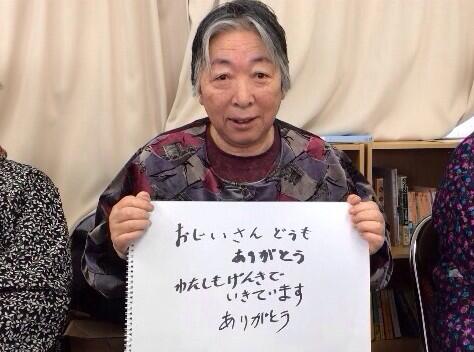 おじいさん どうも
ありがとう
わたしもげんきで
いきています
ありがとう